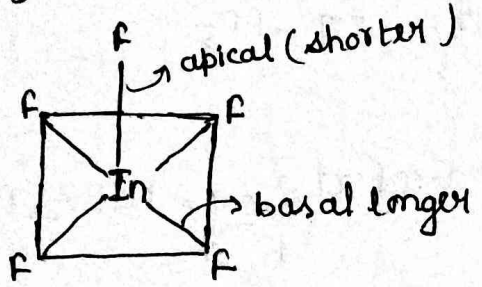 F
apical (shorter)
F F
In
basal longer
F F